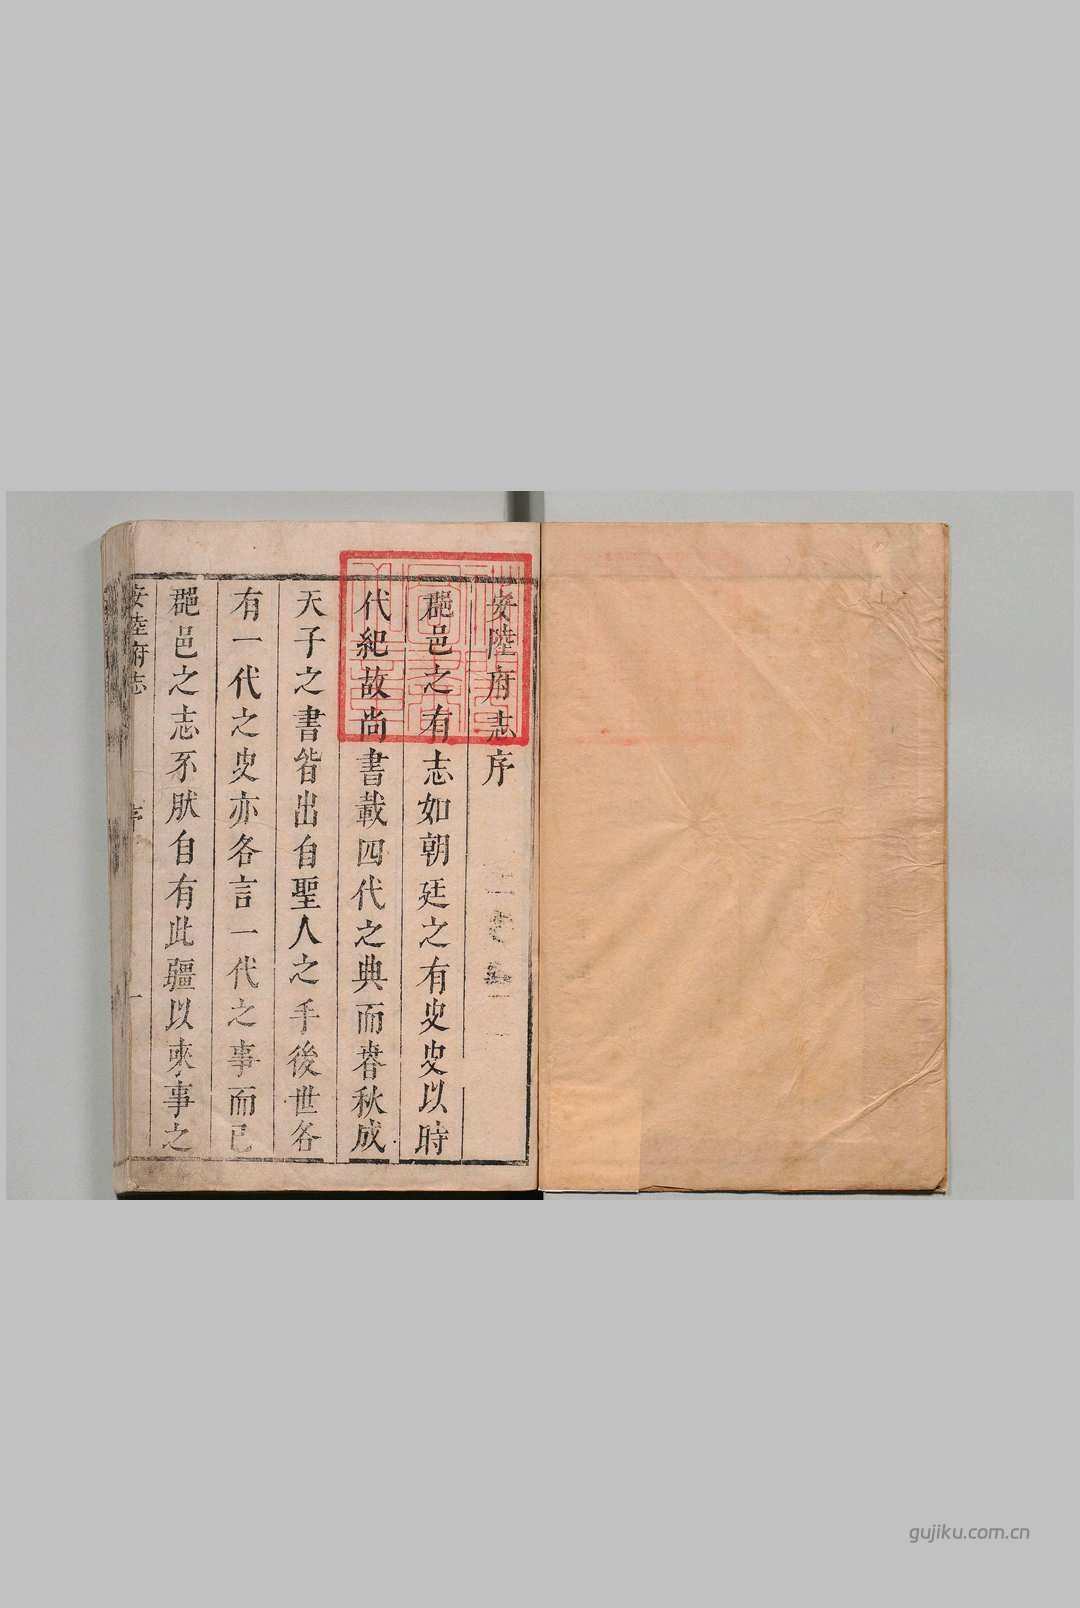 安陸府志序
郡邑之有志如朝廷之有史史以時
代紀故尚書載四代之典而春秋成
天子之書皆出自聖人之手後世各
有一代之史亦各言一代之事而已
郡邑之志不然自有此疆以來事之
安陸府志
序
一
gujiku.com.cn